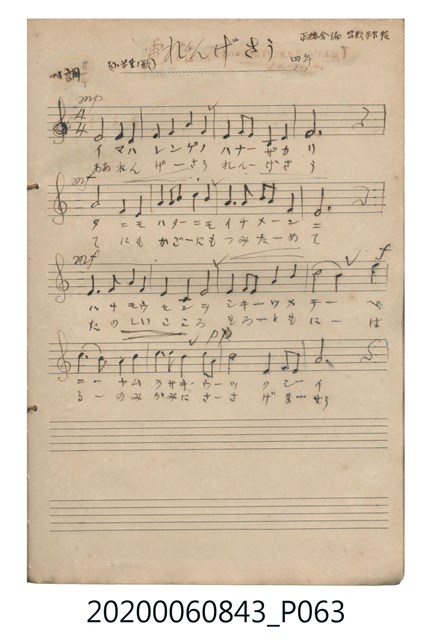 れんげさう
四年
ハ調
mp
イマハ レンゲノ ハナーザカリ
ああれん げーさう れんーげさう
mf
タニモハターニモイチメーンニ
てにもかごーにもつみたーめて
mf f
ハナモウセンヲ シキーツメテー
たのしいこころ もろーともにー
pp
ニームラサキーウーツクシイ
るーのみかみにさーさげませう
20200060843_P063